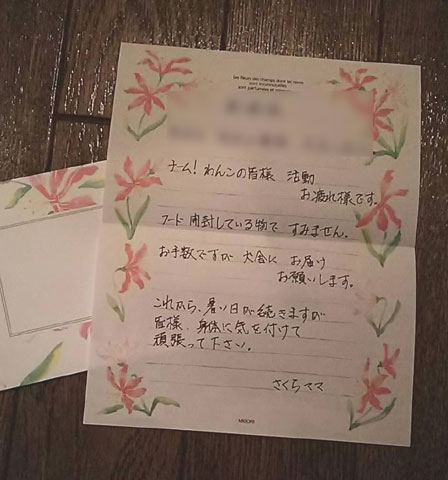 les fleurs des champs dont les noms
sont inconnuecs
sont parfumées et
チーム！わんこの皆様 活動
お疲れ様です。
フード 開封している物で すみません。
お手数ですが 犬舎に お届け
お願いします。
これから、暑い日が続きますが
皆様、身体に気を付けて
頑張って下さい。
さくらママ
MIDORI